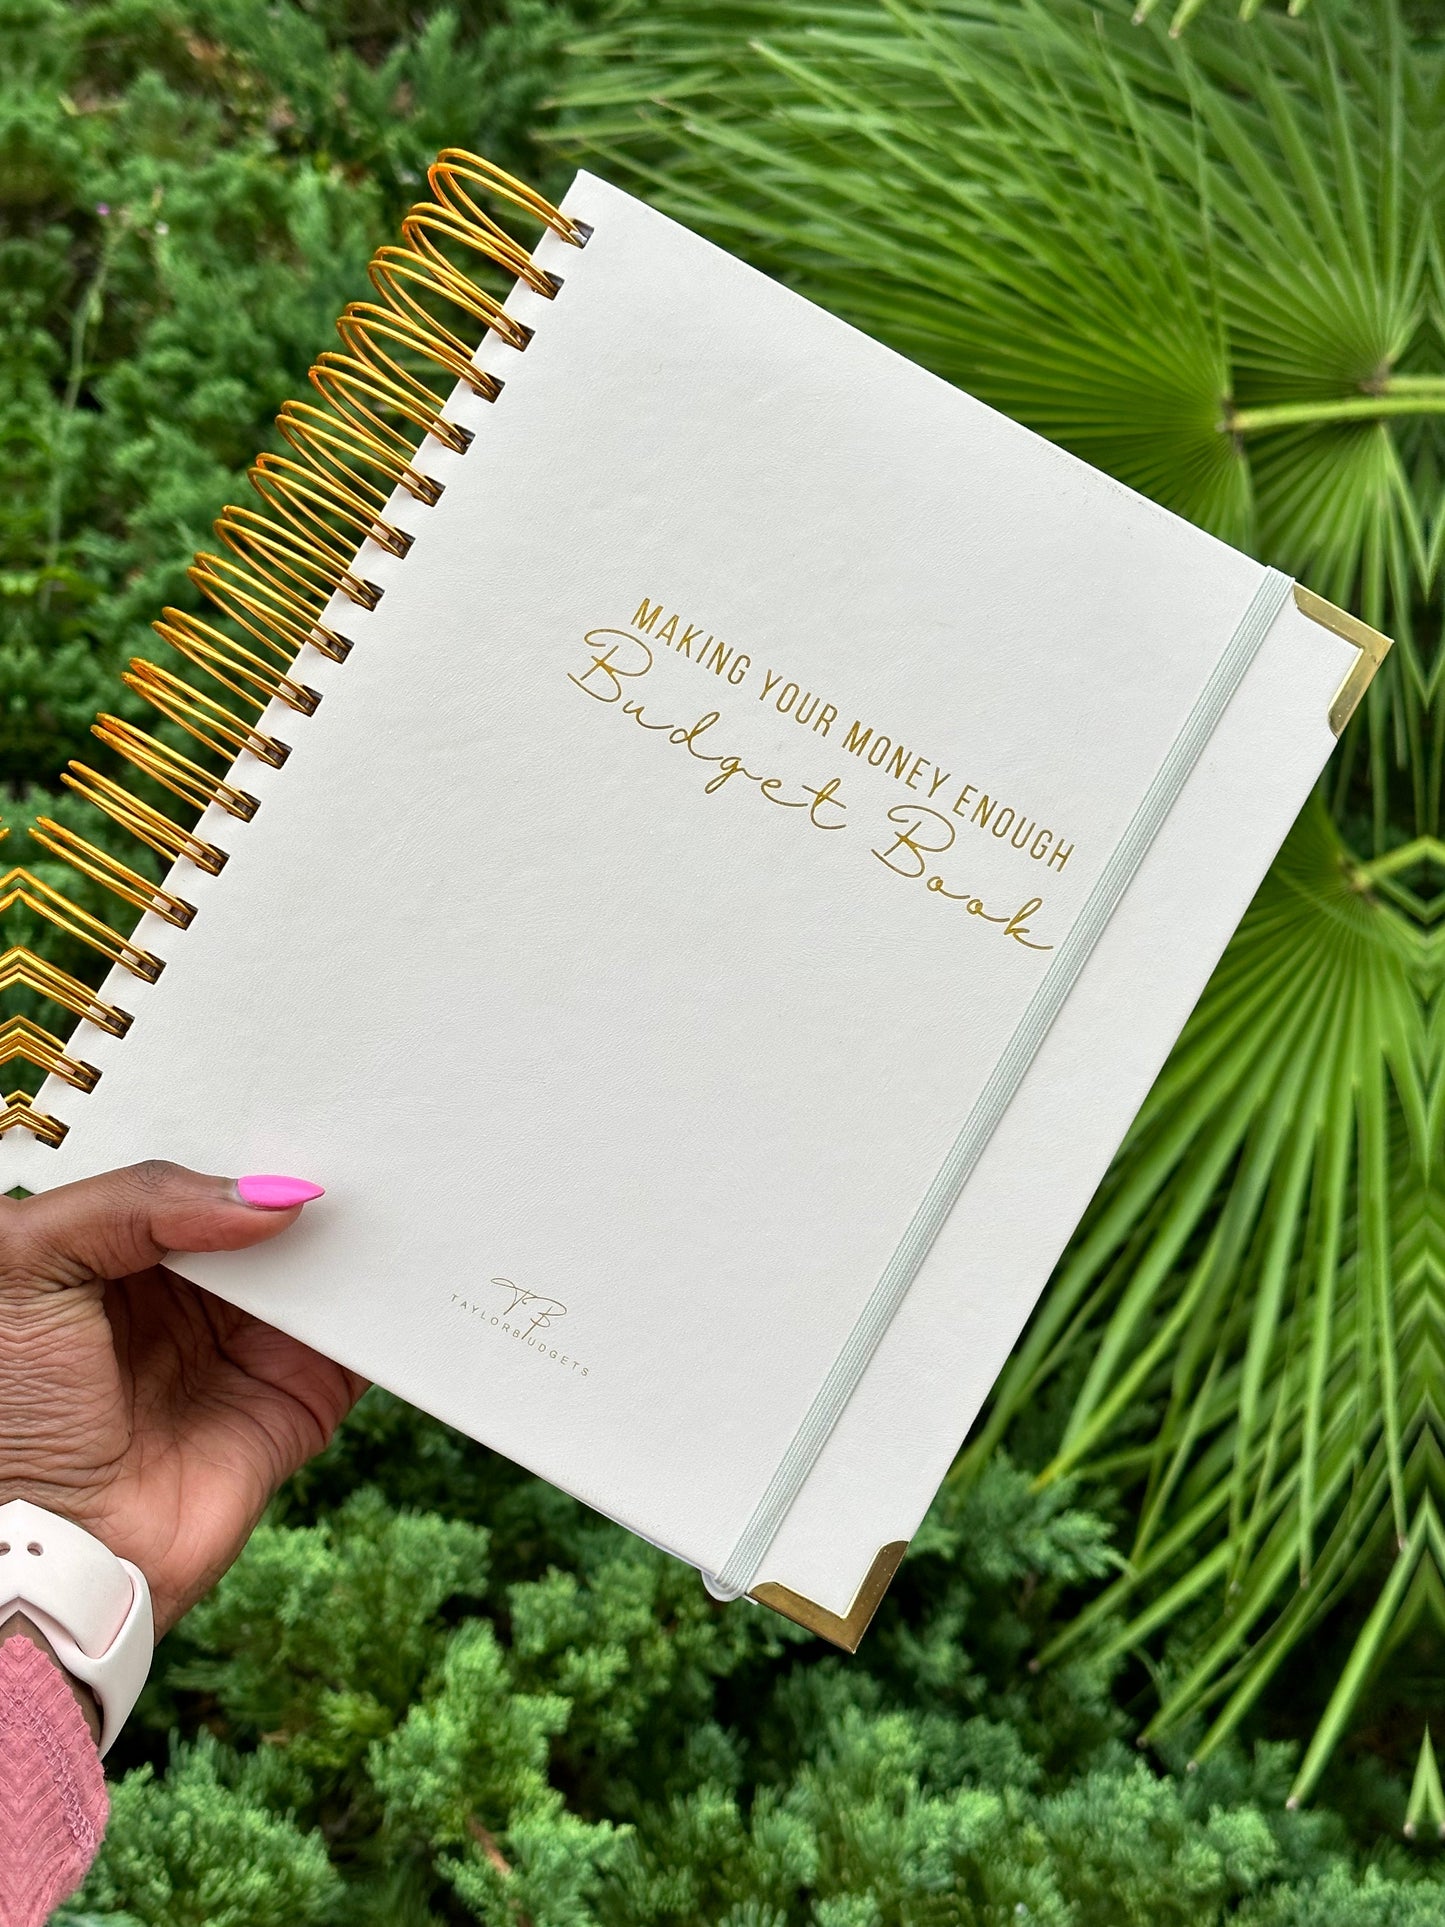 MAKING YOUR MONEY ENOUGH
Budget Book
TB
TAYLORBUDGETS